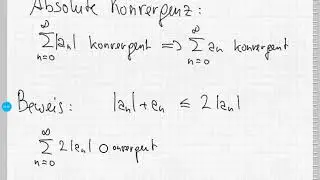 Absolute Konvergenz:
∞ ∑ n=0 |an| konvergent => ∞ ∑ n=0 an konvergent
Beweis: |an| + an ≤ 2|an|
∞ ∑ n=0 2|an| onvergent